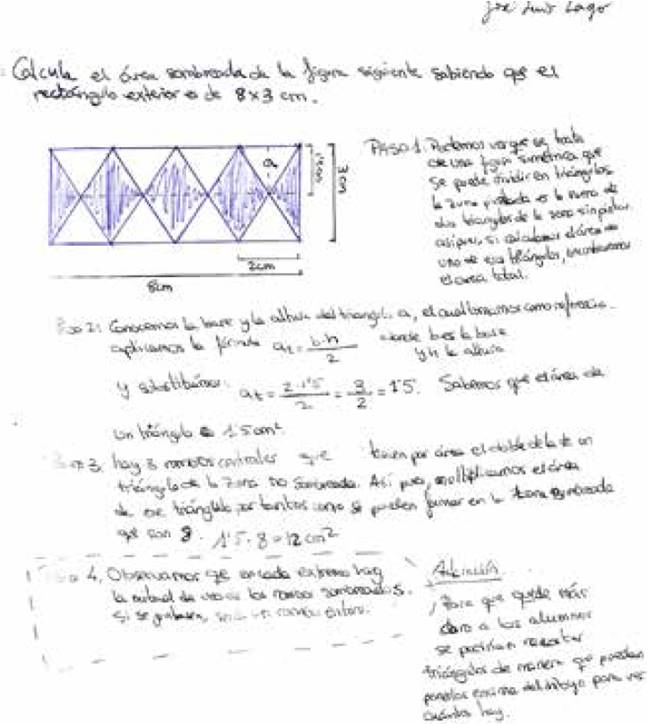 José Luis Lago
Calcula el área sombreada de la figura siguiente sabiendo que el
rectángulo exterior es de 8x3 cm.
a
1'5cm
3cm
2cm
8cm
PASO 1. Podemos ver que se trata
de una figura simétrica que
se puede dividir en triángulos
la zona pintada es la suma de
dos triángulos de la zona sin pintar.
así pues, si calculamos el área de
uno de esos triángulos,
el área total.
Paso 2: Conocemos la base y la altura del triángulo a, el cual tomamos como referencia.
aplicamos la fórmula at = b.h / 2 donde b es la base
y h la altura
y sustituimos. at = 2.1'5 / 2 = 3 / 2 = 1'5. Sabemos que el área de
un triángulo es 1'5 cm²
Paso 3. hay 3 rombos centrales que tienen por área el doble de la de un
triángulo de la zona no sombreada. Así pues, multiplicamos el área
de ese triángulo por tantos como se pueden formar en la zona sombreada
que son 8. 1'5 . 8 = 12 cm²
Paso 4. Observamos que en cada extremo hay
la mitad de uno de los rombos sombreados.
Si se juntasen, sería un rombo entero.
Aclaración
Para que quede más
claro a los alumnos
se podrían recortar
triángulos de manera que puedan
ponerlos encima del dibujo para ver
cuántos hay.